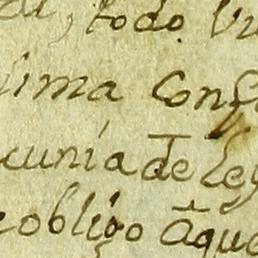 todo
ima Conf
cunia de Ley
obligo aqu